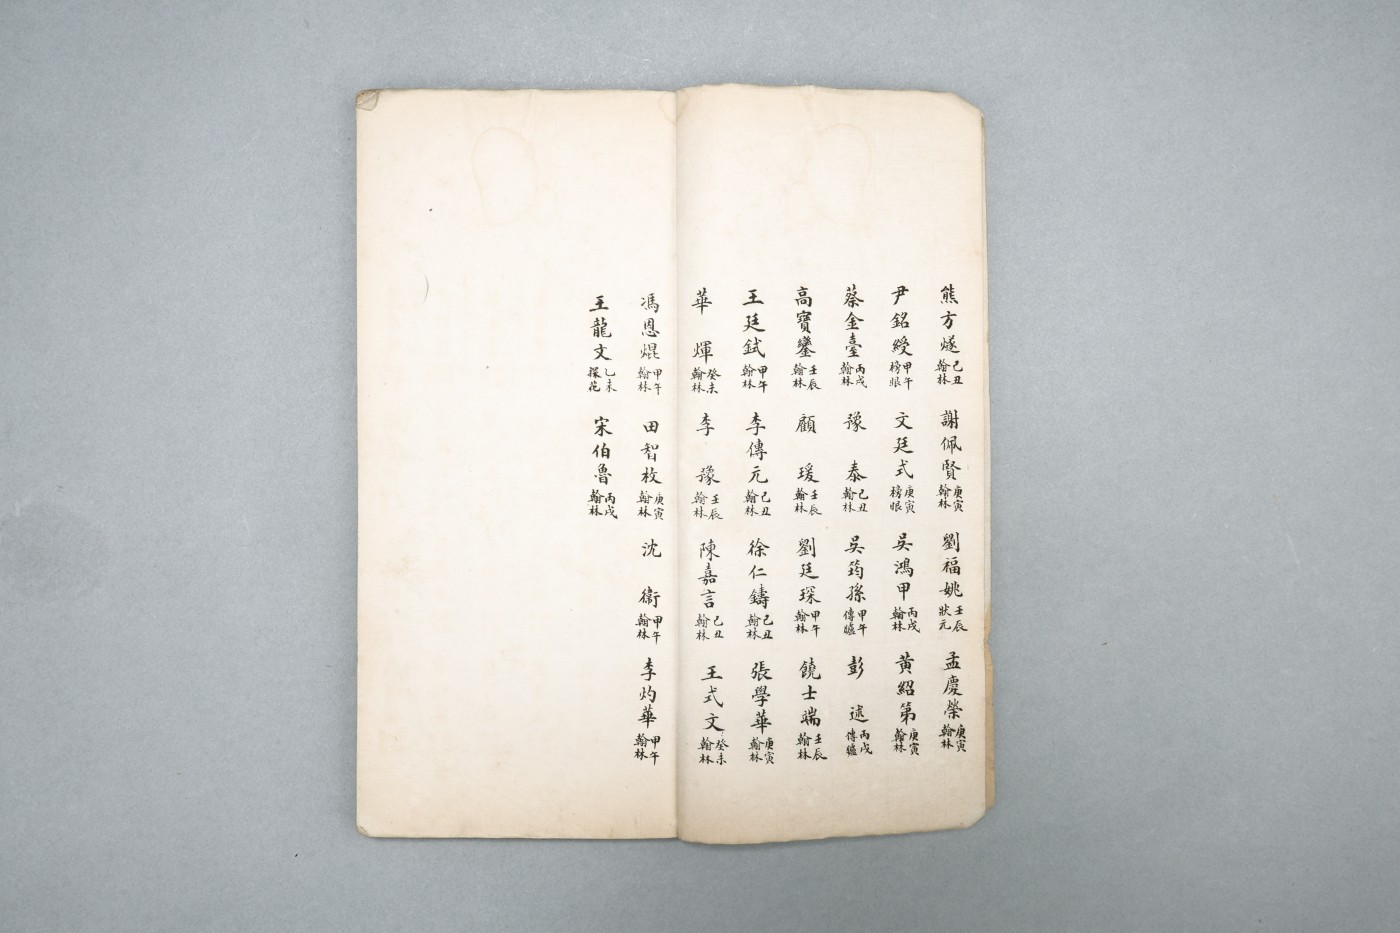 熊方燧己丑翰林 謝佩賢庚寅翰林 劉福姚壬辰狀元 孟慶榮庚寅翰林
尹銘綬甲午榜眼 文廷式庚寅榜眼 吳鴻甲丙戌翰林 黃紹第庚寅翰林
蔡金臺丙戌翰林 豫泰己丑翰林 吳筠孫甲午傳臚 彭述丙戌傳臚
高寶鑾壬辰翰林 顧瑗壬辰翰林 劉廷琛甲午翰林 饒士端壬辰翰林
王廷鉽甲午翰林 李傳元己丑翰林 徐仁鑄己丑翰林 張學華庚寅翰林
華煇癸未翰林 李豫壬辰翰林 陳嘉言己丑翰林 王式文癸未翰林
馮恩焜甲午翰林 田智枚庚寅翰林 沈衞甲午翰林 李灼華甲午翰林
王龍文乙未探花 宋伯魯丙戌翰林